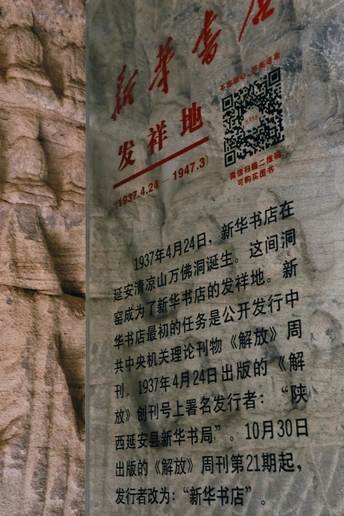 新华书店
发祥地
(1937.4.24 1947.3)
不忘初心 牢记使命
微信扫描二维码
可购买图书
1937年4月24日，新华书店在
延安清凉山万佛洞诞生。这间洞
窑成为了新华书店的发祥地。新
华书店最初的任务是公开发行中
共中央机关理论刊物《解放》周
刊。1937年4月24日出版的《解
放》创刊号上署名发行者：“陕
西延安县新华书局”。10月30日
出版的《解放》周刊第21期起，
发行者改为：“新华书店”。